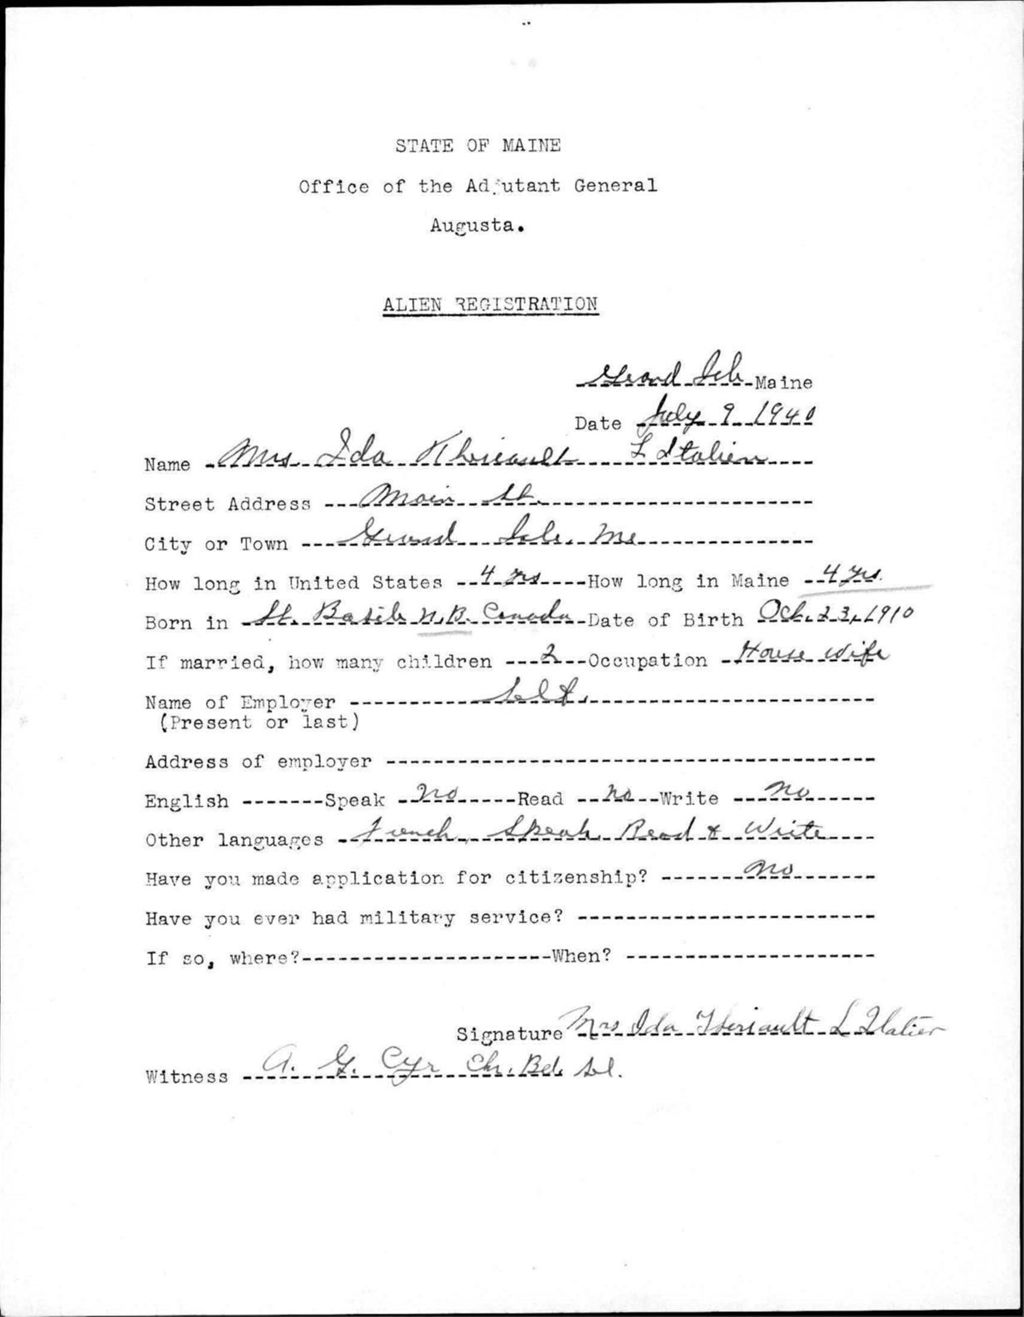 STATE OF MAINE
Office of the Adjutant General
Augusta.
ALIEN REGISTRATION
Grand Isle Maine
Date July 9 1940
Name Mrs Ida Theriault L Italien
Street Address Main St.
City or Town Grand Isle, Me
How long in United States 4 yrs How long in Maine 4 yrs
Born in St. Basile N.B. Canada Date of Birth Oct. 23, 1910
If married, how many children 2 Occupation House wife
Name of Employer Self.
(Present or last)
Address of employer
English Speak No Read No Write No
Other languages French, Speak Read & Write
Have you made application for citizenship? No
Have you ever had military service?
If so, where? When?
Signature Mrs Ida Theriault L Italien
Witness A. G. Cyr Ch. Bd. Sel.